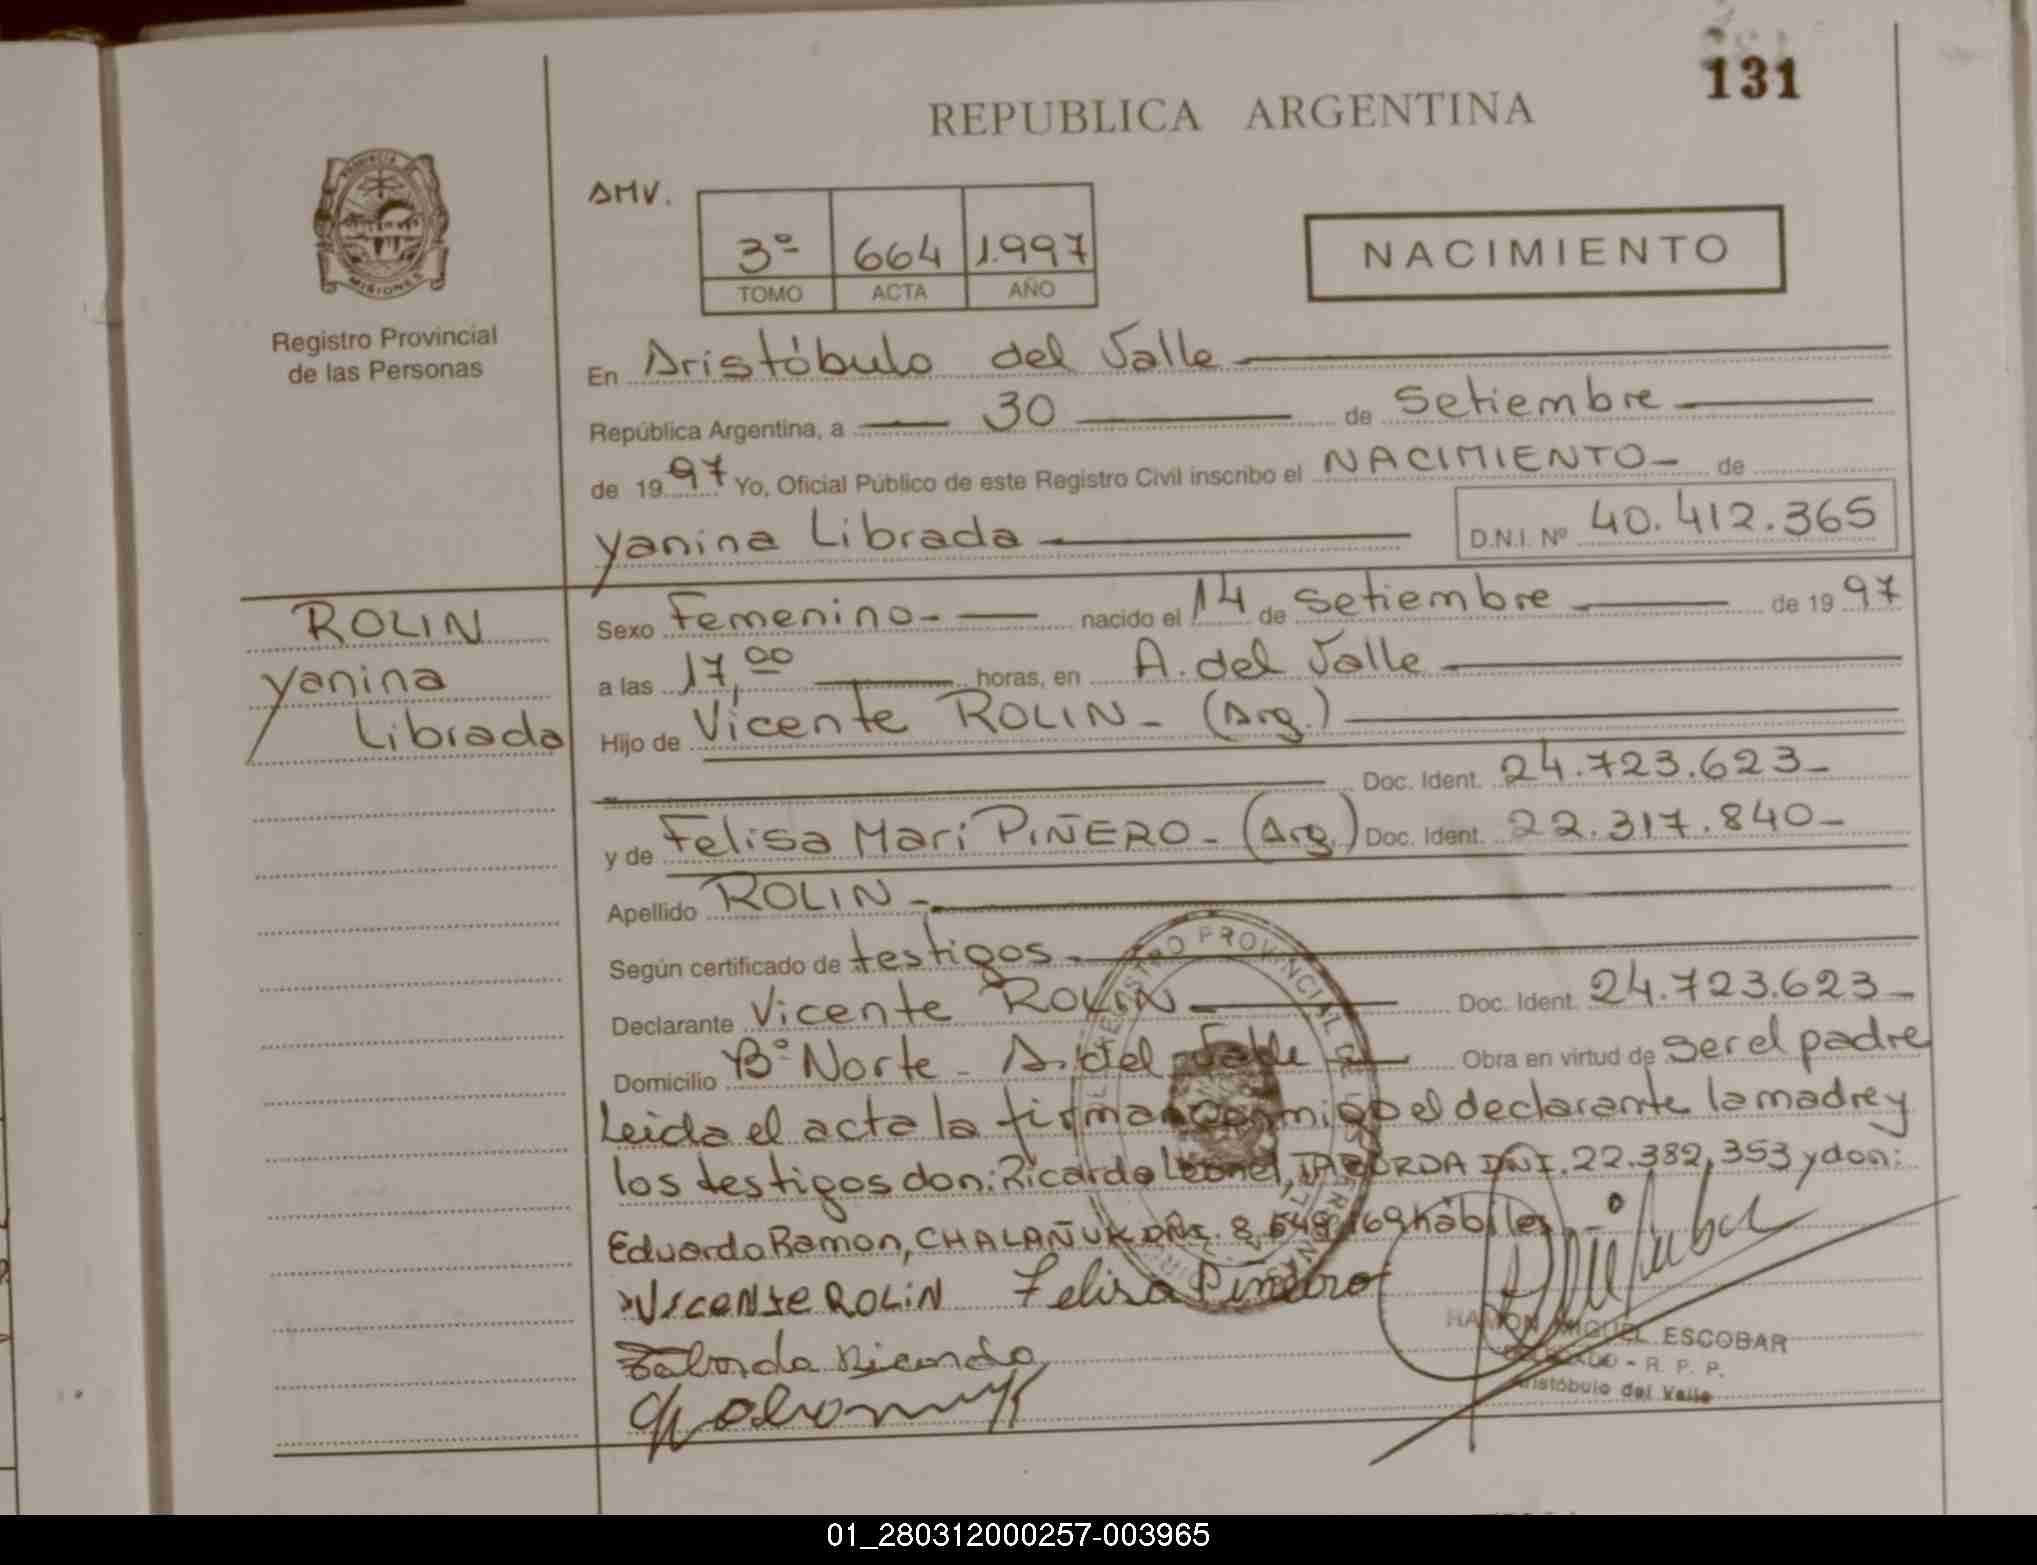 131
REPUBLICA ARGENTINA
PROVINCIA
MISIONES
Registro Provincial
de las Personas
AMV.
3º 664 1.997
TOMO ACTA AÑO
NACIMIENTO
En Aristóbulo del Valle
República Argentina, a 30 de Setiembre
de 1997 Yo, Oficial Público de este Registro Civil inscribo el NACIMIENTO- de
Yanina Librada D.N.I. Nº 40.412.365
ROLIN
Yanina
Librada
Sexo Femenino- nacido el 14 de Setiembre de 1997
a las 17,00 horas, en A. del Valle
Hijo de Vicente ROLIN- (Arg.)
Doc. Ident. 24.723.623-
y de Felisa Mari PIÑERO- (Arg.) Doc. Ident. 22.317.840-
Apellido ROLIN-
Según certificado de testigos-
Declarante Vicente ROLIN- Doc. Ident. 24.723.623-
Domicilio Bº Norte- A. del Valle Obra en virtud de ser el padre
Leida el acta la firman conmigo el declarante la madre y
los testigos don: Ricardo Leonel, TABORDA DNI. 22.382.353 y don:
Eduardo Ramon, CHALAÑUK DNI. 8,548,169 hábiles
VICENTE ROLIN Felisa Pineiro
Taborda Ricardo
RAMON MIGUEL ESCOBAR
DELEGADO - R. P. P.
Aristóbulo del Valle
REGISTRO PROVINCIAL DE LAS PERSONAS
01_280312000257-003965